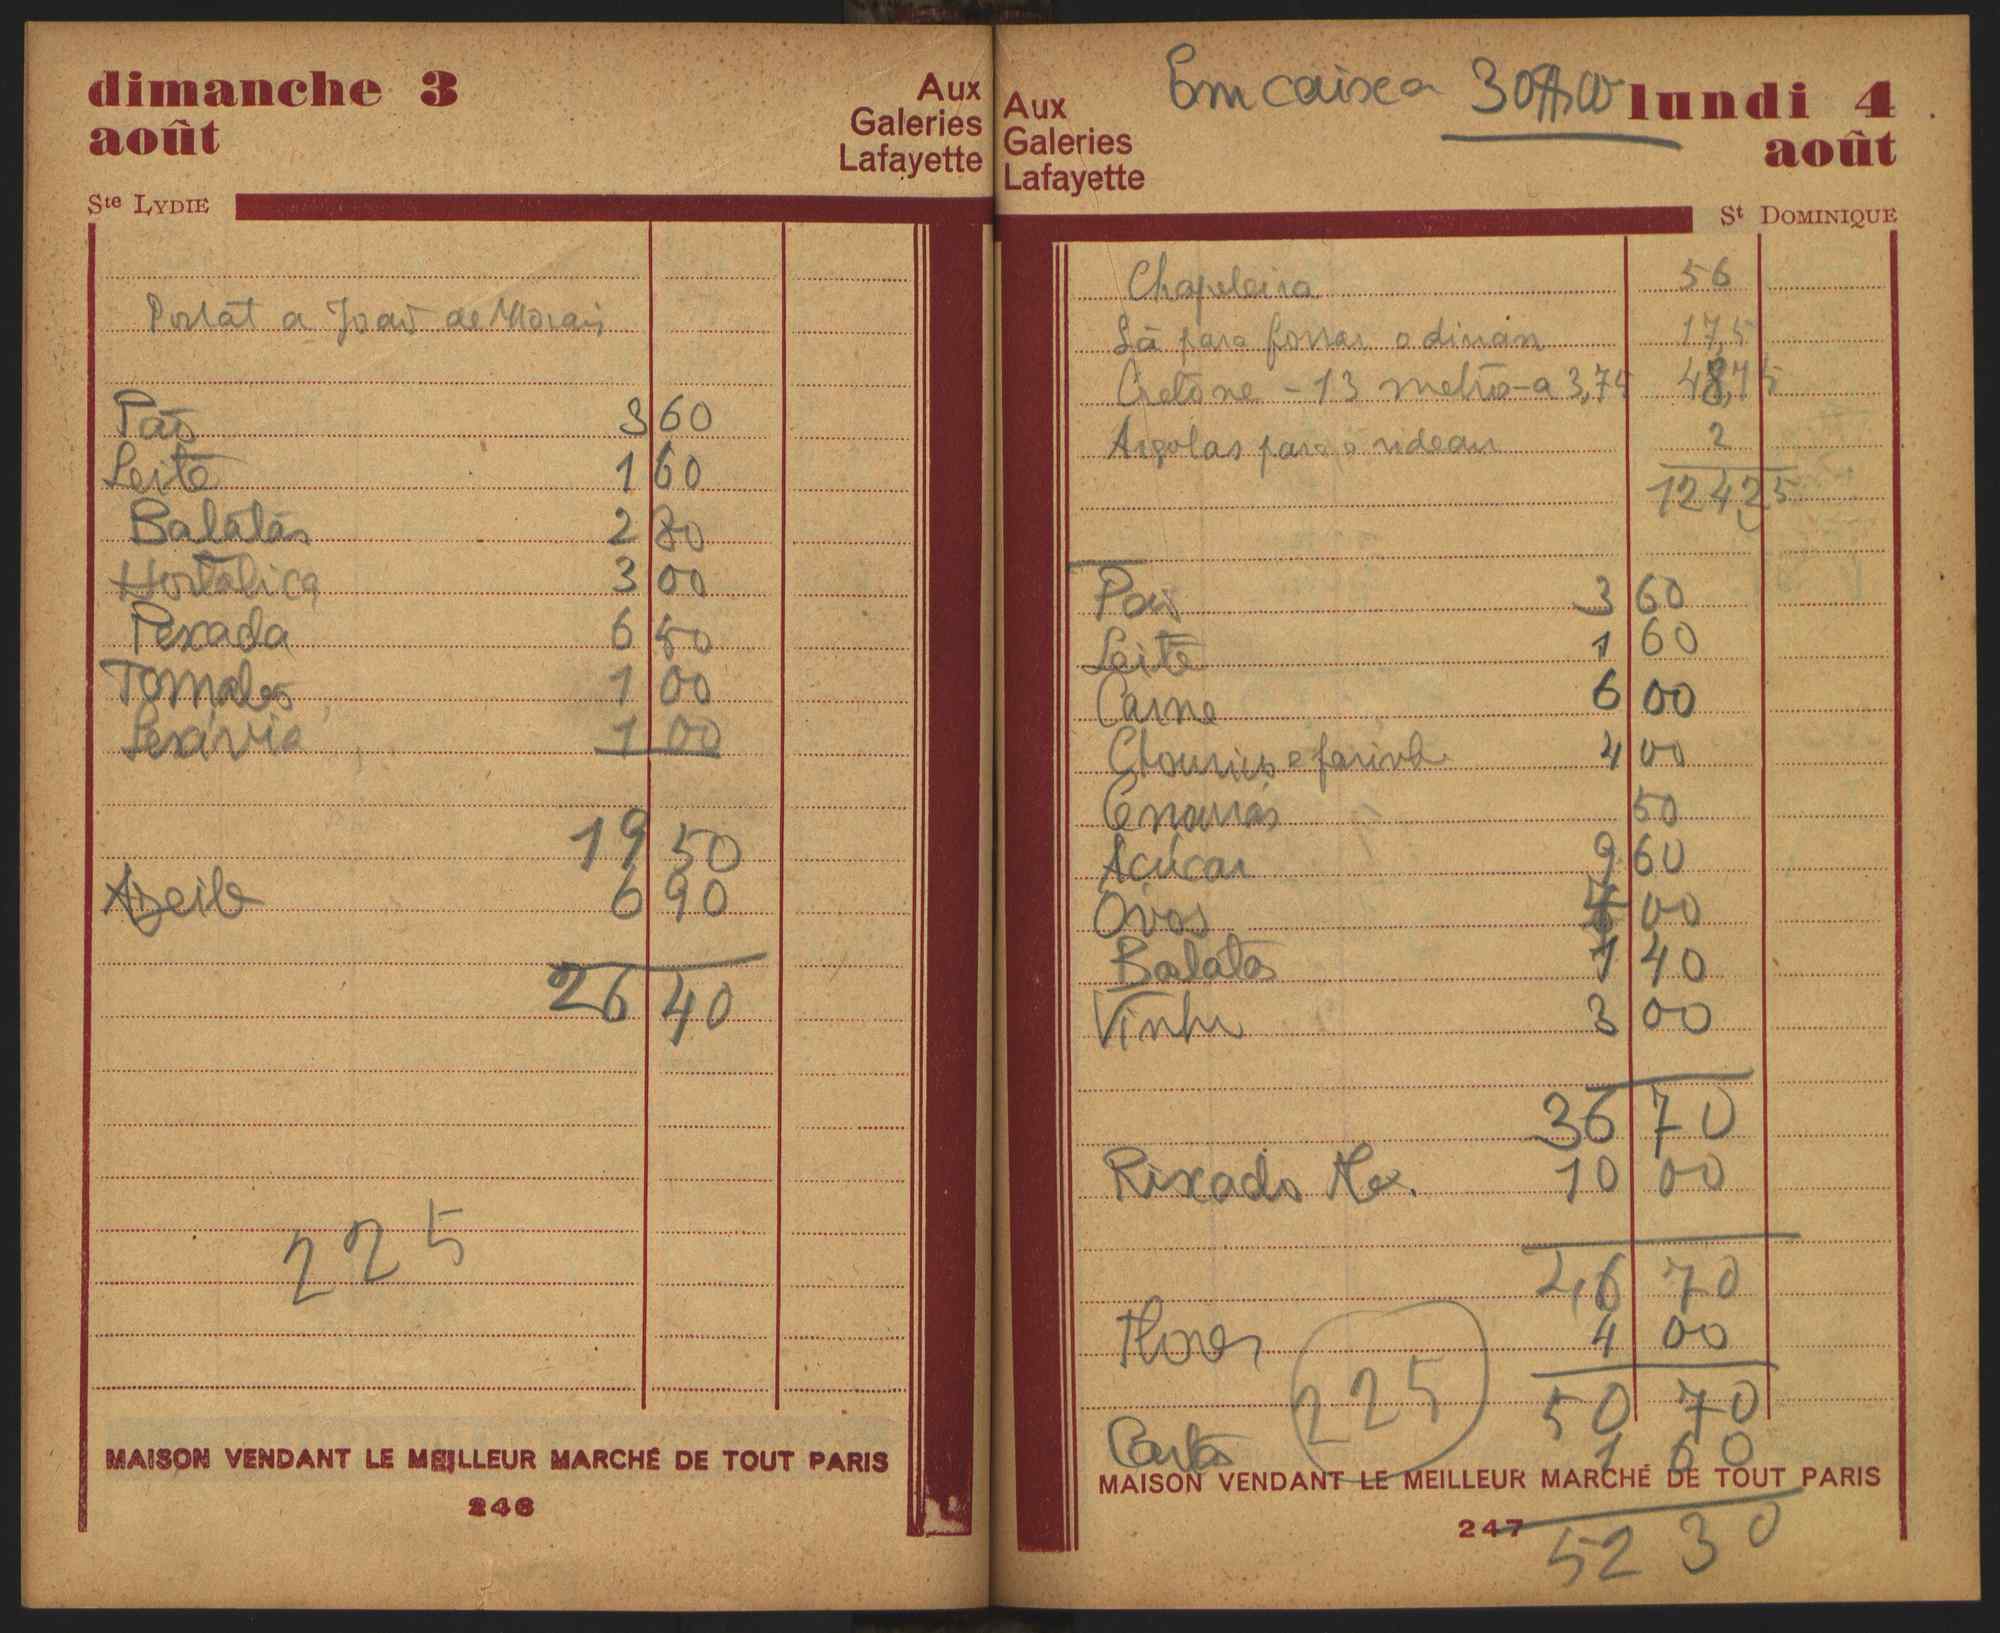 dimanche 3
août
Aux
Galeries
Lafayette
Ste LYDIE
a João de Morais
Pão 3 60
Leite 1 60
Batatas 2 80
Hortaliça 3 00
Pexada 6 50
Tomates 1 00
Lexívia 1 00
19 50
Azeite 6 90
26 40
225
MAISON VENDANT LE MEILLEUR MARCHÉ DE TOUT PARIS
246
Em caixa
lundi 4
août
Aux
Galeries
Lafayette
St DOMINIQUE
Chapeleira 56
Lã para forrar o divan 17,5
Cretone - 13 metros a 3,75 48,75
Argolas para o rideau 2
124,25
Pão 3 60
Leite 1 60
Carne 6 00
Chouriço e farinh 4 00
Cenouras 50
Açúcar 9 60
Ovos 00
Batatas 1 40
Vinho 3 00
36 70
Rixado 10 00
46 70
Flores 4 00
225
50 70
Cartas 1 60
MAISON VENDANT LE MEILLEUR MARCHÉ DE TOUT PARIS
247
52 30